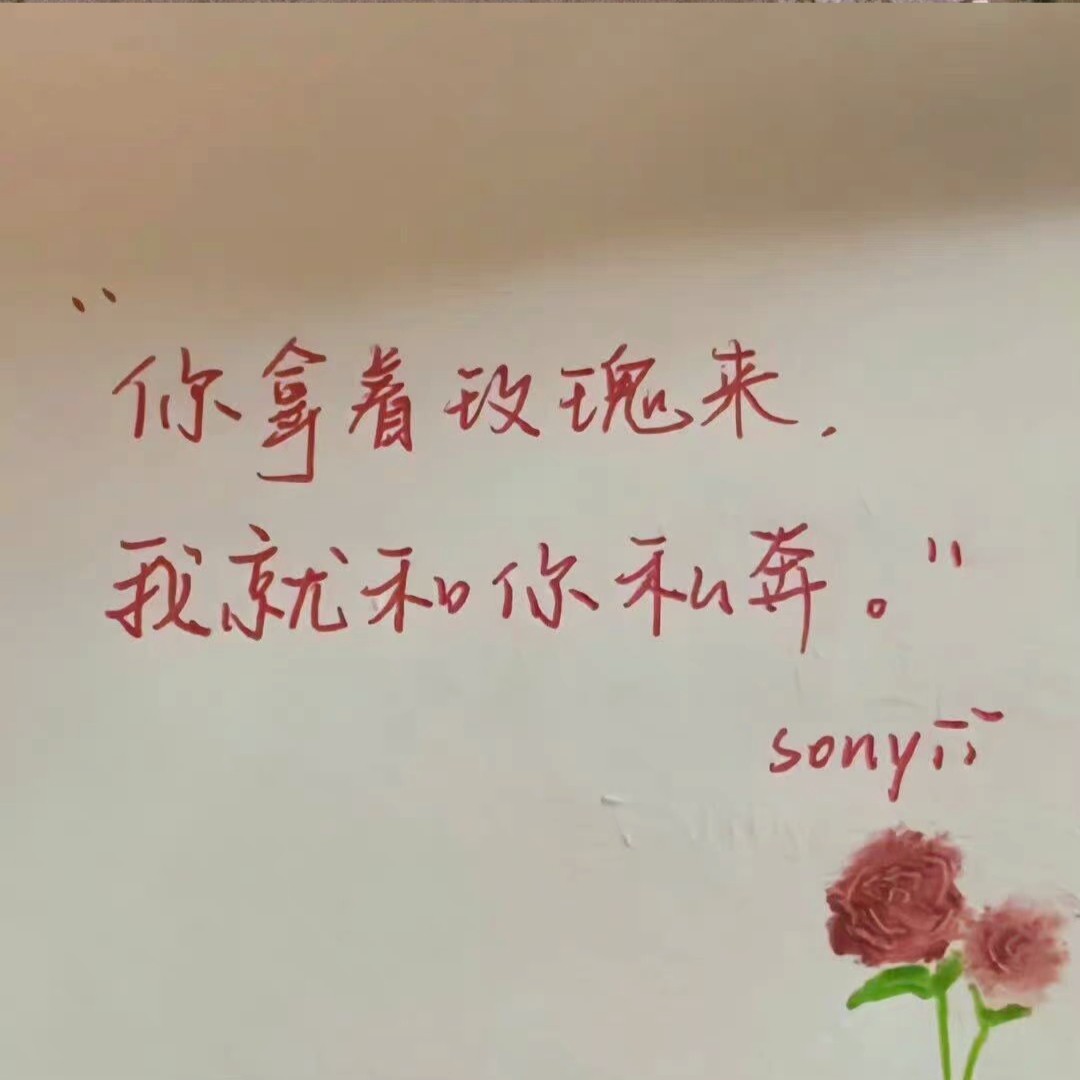 “你拿着玫瑰来，
我就和你私奔。”
sony